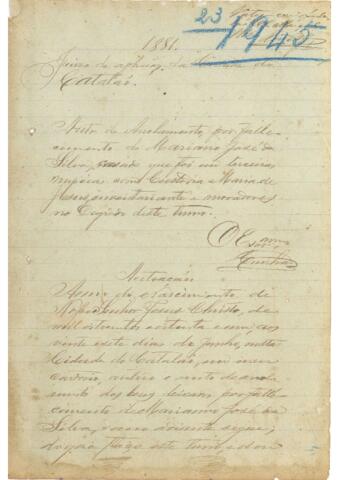 23
1945
1881.
Juizo de orphãos da
Catalão.
Auto de Arrolamento por falle-
cimento de Mariano José da
Silva, casado que foi em terceira
nupcia com Custodia Maria de
Jesus, inventariante e moradores
no Destricto deste termo.
O Esc.am
Autuação
Anno do Nascimento de
Nosso Senhor Jesus Christo, de
mil oitocentos oitenta e um, aos
vinte e sete dias de Junho, nesta
Cidade de Catalão, em meu
cartorio, autuo o auto de arrola-
mento dos bens ficaram por falle-
cimento de Mariano José da
Silva, como adiante segue;
do que faço este termo. eu